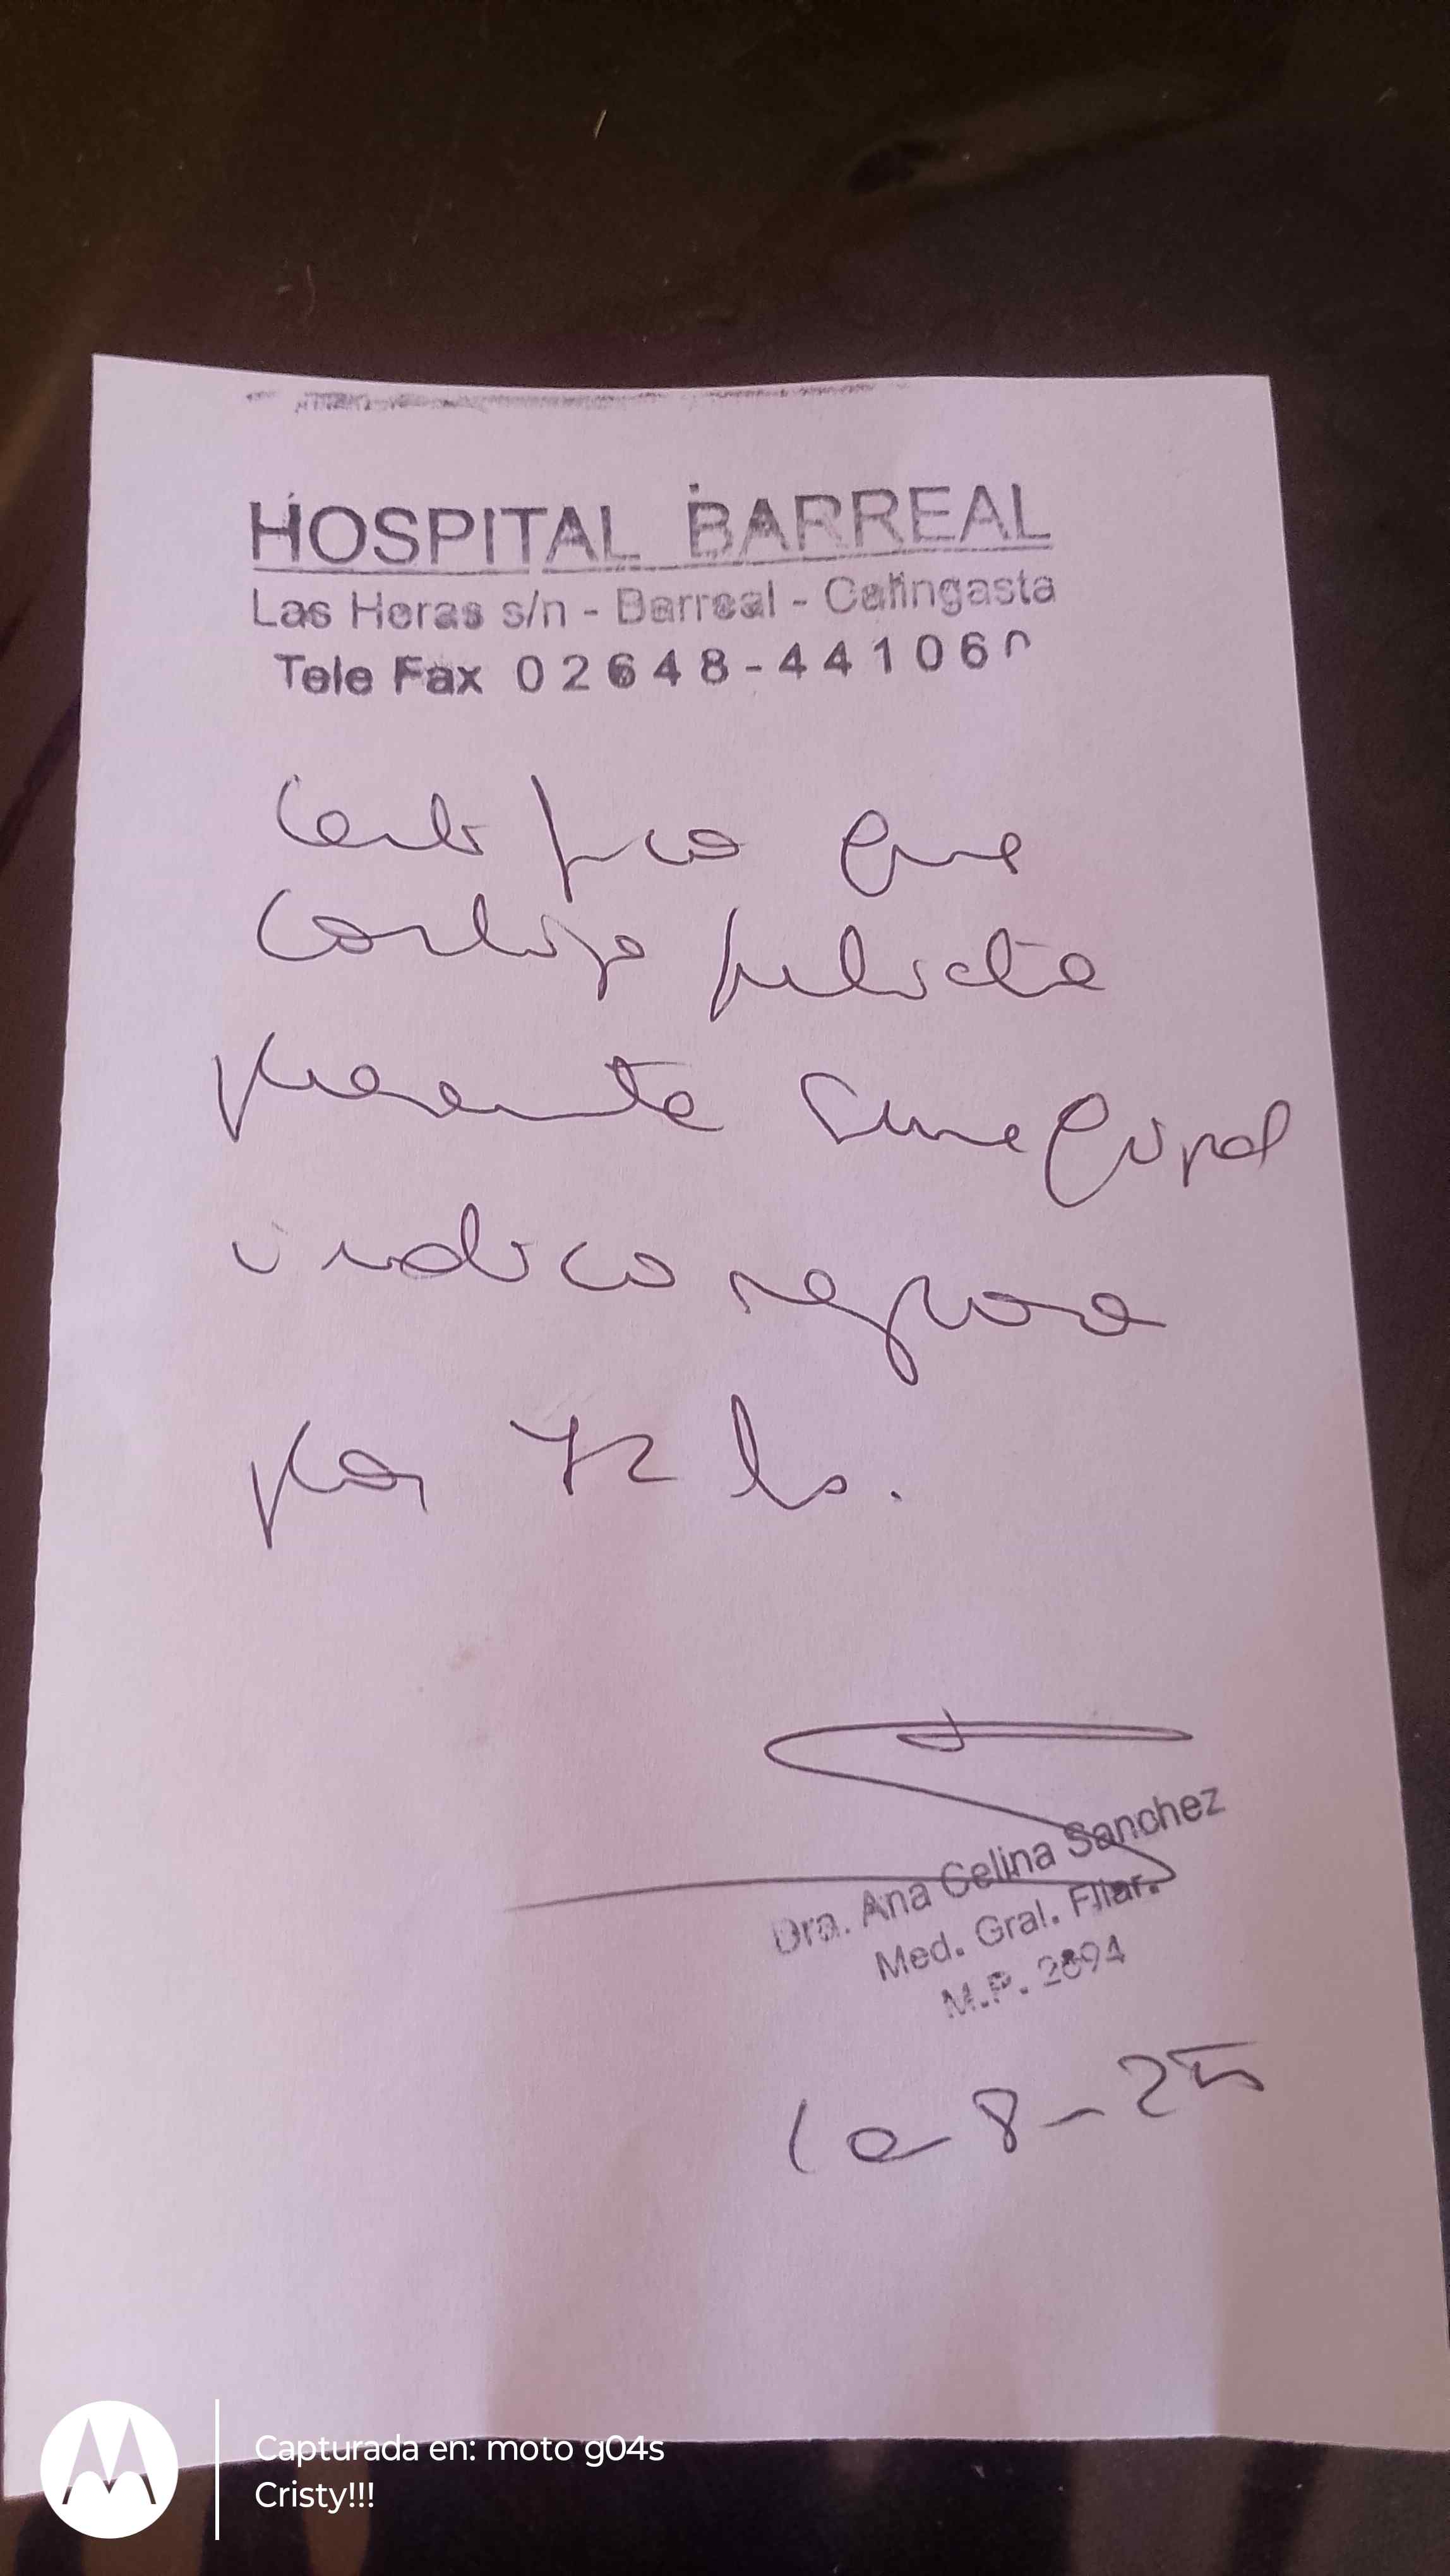 HOSPITAL BARREAL
Las Heras s/n - Barreal - Calingasta
Tele Fax 02648-441060
Certifico que
presenta
indico reposo
por 72 hs.
Dra. Ana Celina Sanchez
Med. Gral. Fliar.
M.P. 2694
10-8-25
Capturada en: moto g04s
Cristy!!!